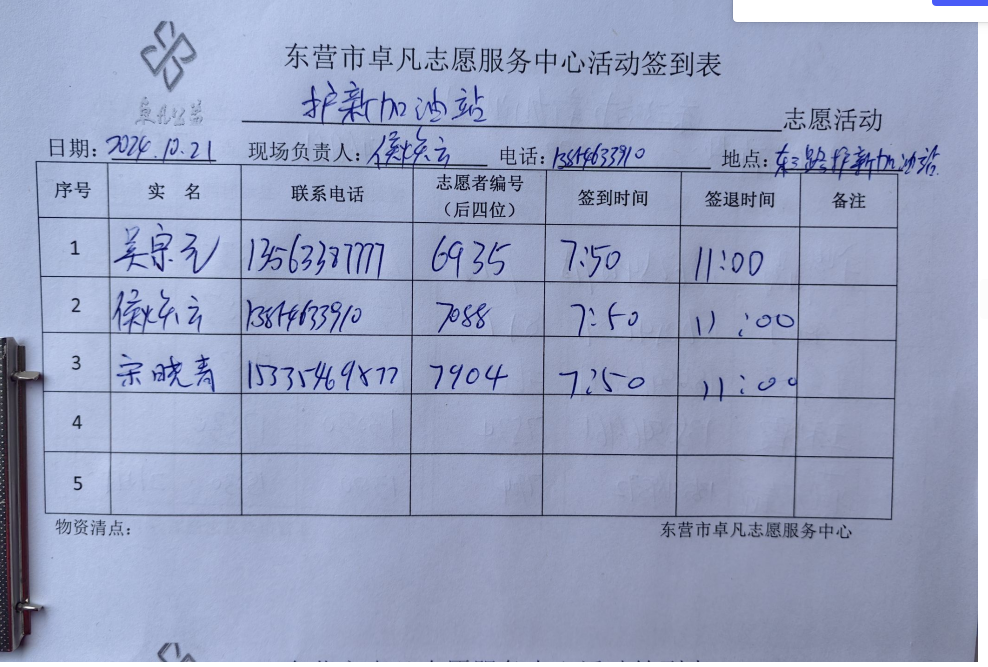 东营市卓凡志愿服务中心活动签到表
卓凡公益
护新加油站 志愿活动
日期：2024.10.21 现场负责人：侯焕云 电话：13854633910 地点：东三路护新加油站
序号 实 名 联系电话 志愿者编号（后四位） 签到时间 签退时间 备注
1 吴宗元 13563387777 6935 7:50 11:00
2 侯焕云 13854633910 7088 7:50 11:00
3 宋晓青 15335469877 7904 7:50 11:00
4
5
物资清点： 东营市卓凡志愿服务中心